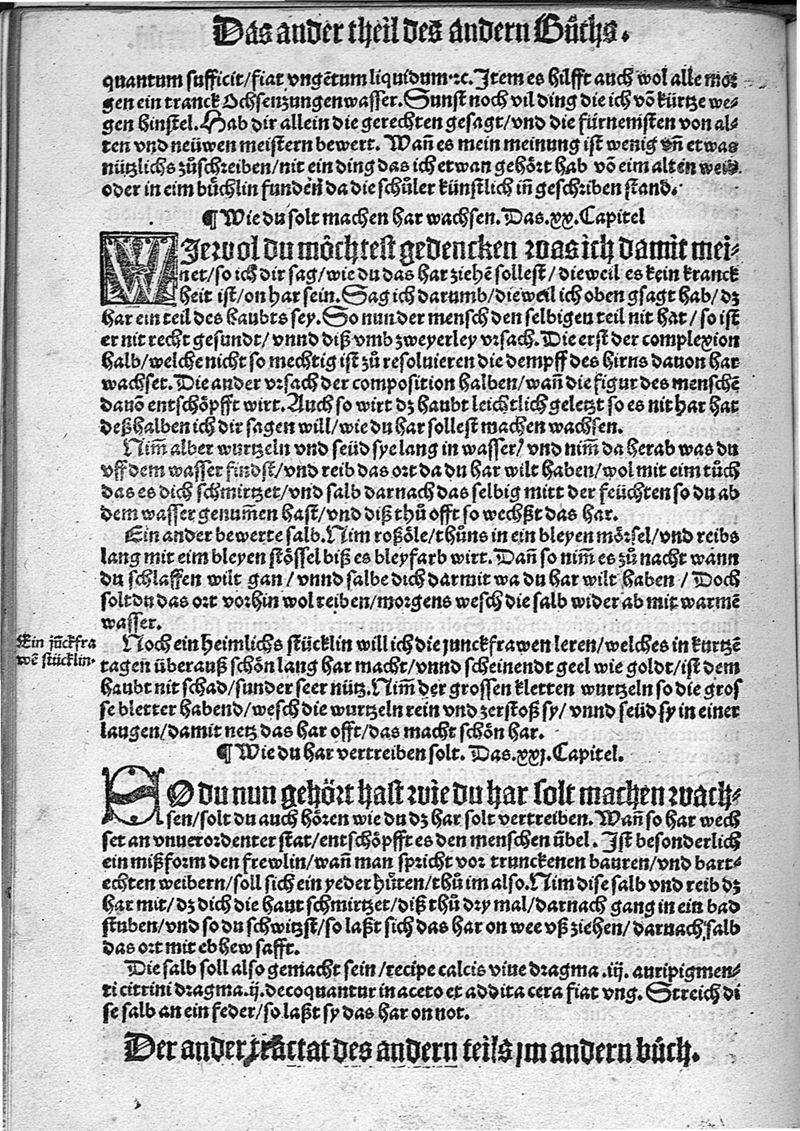 Das ander theil des andern Bůchs.
quantum sufficit/fiat vngētum liquidum·ꝛc. Item es hilfft auch wol alle mor
gen ein tranck Ochsenzungenwasser. Sunst noch vil ding die ich võ kürtze we-
gen hinstel. Hab dir allein die gerechten gesagt/vnd die fürnemsten von al-
ten vnd neüwen meistern bewert. Wañ es mein meinung ist wenig vñ etwas
nützlichs zůschreiben/nit ein ding das ich etwan gehört hab võ eim alten weib
oder in eim bůchlin funden da die schůler künstlich in geschriben stand.
¶ Wie du solt machen har wachsen. Das.xx.Capitel
WIewol du möchtest gedencken was ich damit mei-
net/so ich dir sag/wie du das har ziehē sollest/dieweil es kein kranck
heit ist/on har sein. Sag ich darumb/dieweil ich oben gsagt hab/dz
har ein teil des haubts sey. So nun der mensch den selbigen teil nit hat/so ist
er nit recht gesundt/vnnd diß vmb zweyerley vrsach. Die erst der complexion
halb/welche nicht so mechtig ist zů resoluieren die dempff des hirns dauon har
wachset. Die ander vrsach der composition halben/wañ die figur des menschē
dauõ entschöpfft wirt. Auch so wirt dz haubt leichtlich geletzt so es nit har hat
deßhalben ich dir sagen will/wie du har sollest machen wachsen.
Nim̄ alber wurtzeln vnd seüd sye lang in wasser/vnd nim̄ da herab was du
vff dem wasser findst/vnd reib das ort da du har wilt haben/wol mit eim tůch
das es dich schmirtzet/vnd salb darnach das selbig mitt der feüchten so du ab
dem wasser genum̄en hast/vnd diß thů offt so wechßt das har.
Ein ander bewerte salb. Nim roßöle/thůns in ein bleyen mörsel/vnd reibs
lang mit eim bleyen stössel biß es bleyfarb wirt. Dañ so nim̄ es zů nacht wann
du schlaffen wilt gan/vnnd salbe dich darmit wa du har wilt haben/Doch
solt du das ort vorhin wol reiben/morgens wesch die salb wider ab mit warmē
wasser.
Ein jūckfra
wē stücklin.
Noch ein heimlichs stücklin will ich die junckfrawen leren/welches in kurtzē
tagen überauß schön lang har macht/vnnd scheinendt geel wie goldt/ist dem
haubt nit schad/sunder seer nütz. Nim̄ der grossen kletten wurtzeln so die gros
se bletter habend/wesch die wurtzeln rein vnd zerstoß sy/vnnd seüd sy in einer
laugen/damit netz das har offt/das macht schön har.
¶ Wie du har vertreiben solt. Das.xxj.Capitel.
SO du nun gehört hast wie du har solt machen wach-
sen/solt du auch hören wie du dz har solt vertreiben. Wañ so har wech
set an vnuerordenter stat/entschöpfft es den menschen übel. Ist besonderlich
ein mißform den frewlin/wañ man spricht vor trunckenen bauren/vnd bart-
echten weibern/soll sich ein yeder hůten/thů im also. Nim dise salb vnd reib dz
har mit/dz dich die haut schmirtzet/diß thů dry mal/darnach gang in ein bad
stuben/vnd so du schwitzst/so laßt sich das har on wee vß ziehen/darnach salb
das ort mit ebhew safft.
Die salb soll also gemacht sein/recipe calcis viue dragma .iij. auripigmen-
ti citrini dragma.ij.decoquantur in aceto et addita cera fiat vng. Streich di
se salb an ein feder/so laßt sy das har on not.
Der ander tractat des andern teils jm andern bůch.